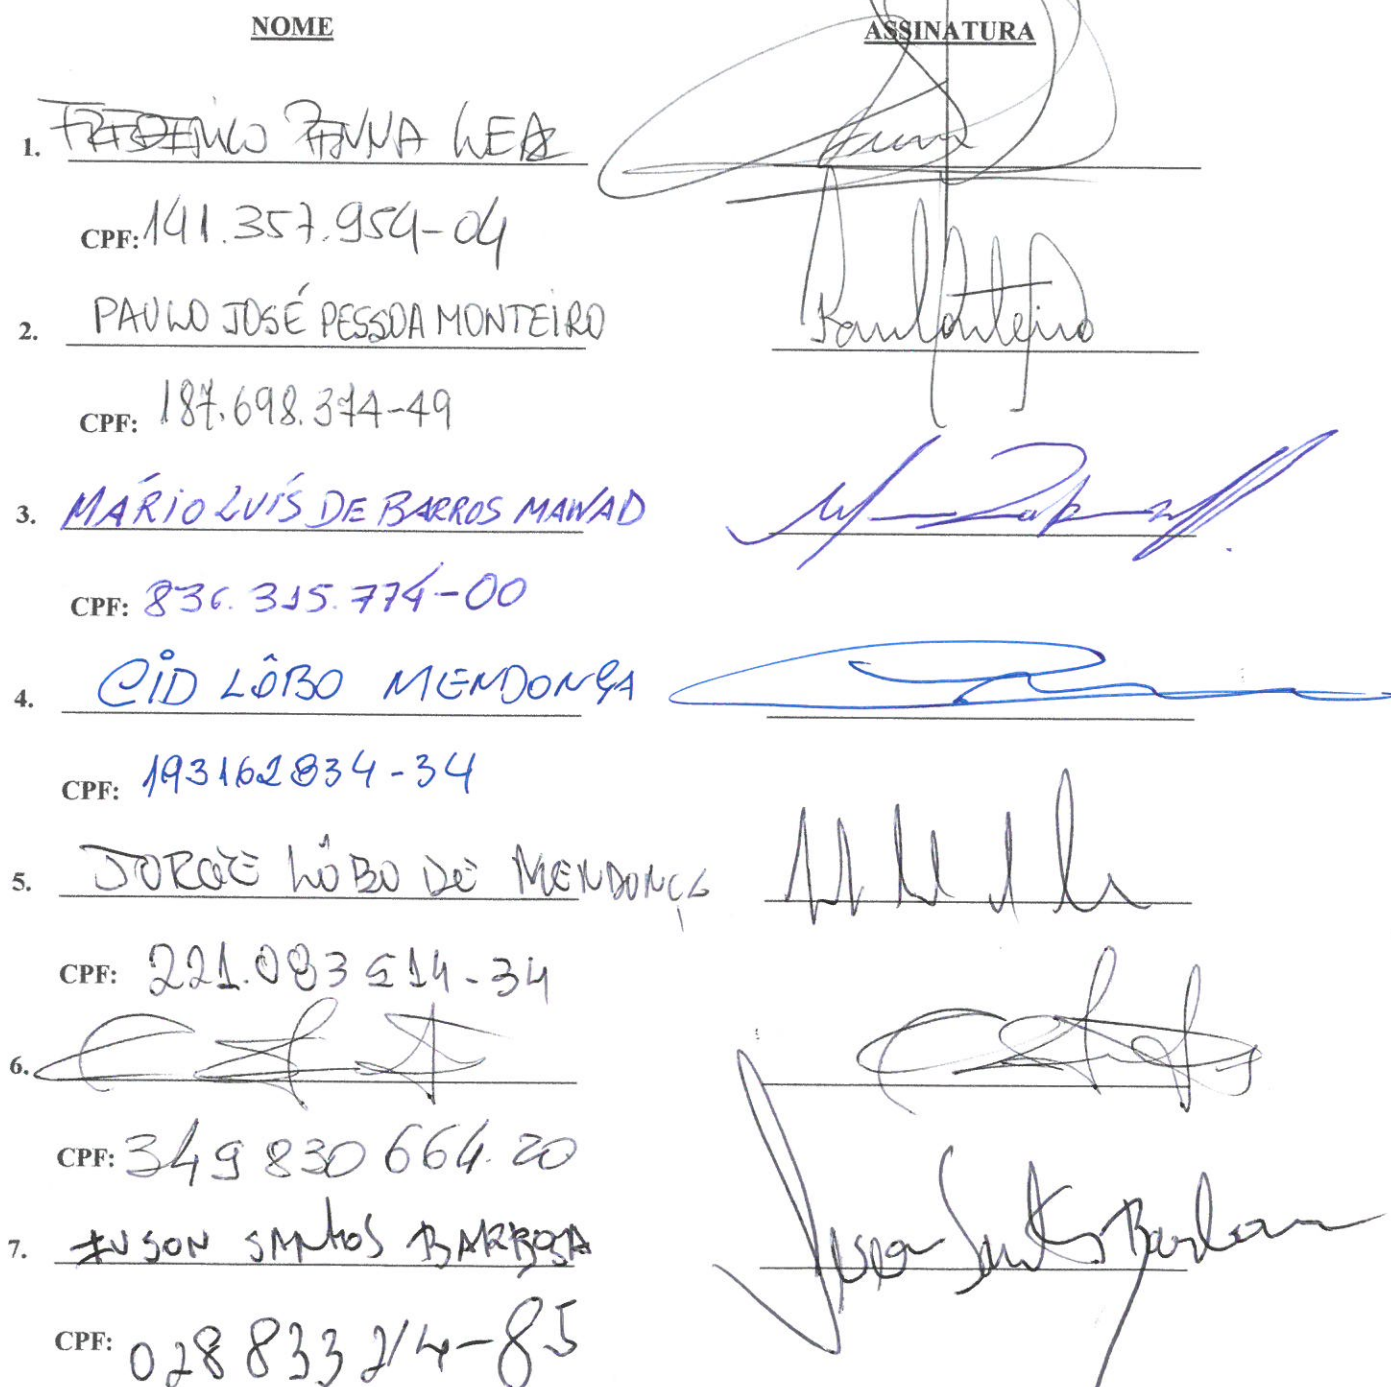 NOME ASSINATURA
1. FREDERICO PENNA LEAL
CPF: 141.357.954-04
2. PAULO JOSÉ PESSOA MONTEIRO
CPF: 187.698.374-49
3. MÁRIO LUÍS DE BARROS MAWAD
CPF: 836.315.774-00
4. CID LÔBO MENDONÇA
CPF: 193162834-34
5. JORGE LÔBO DE MENDONÇA
CPF: 221.083 514-34
6.
CPF: 349 830 664.20
7. SANTOS BARBOSA
CPF: 028 833 214-85